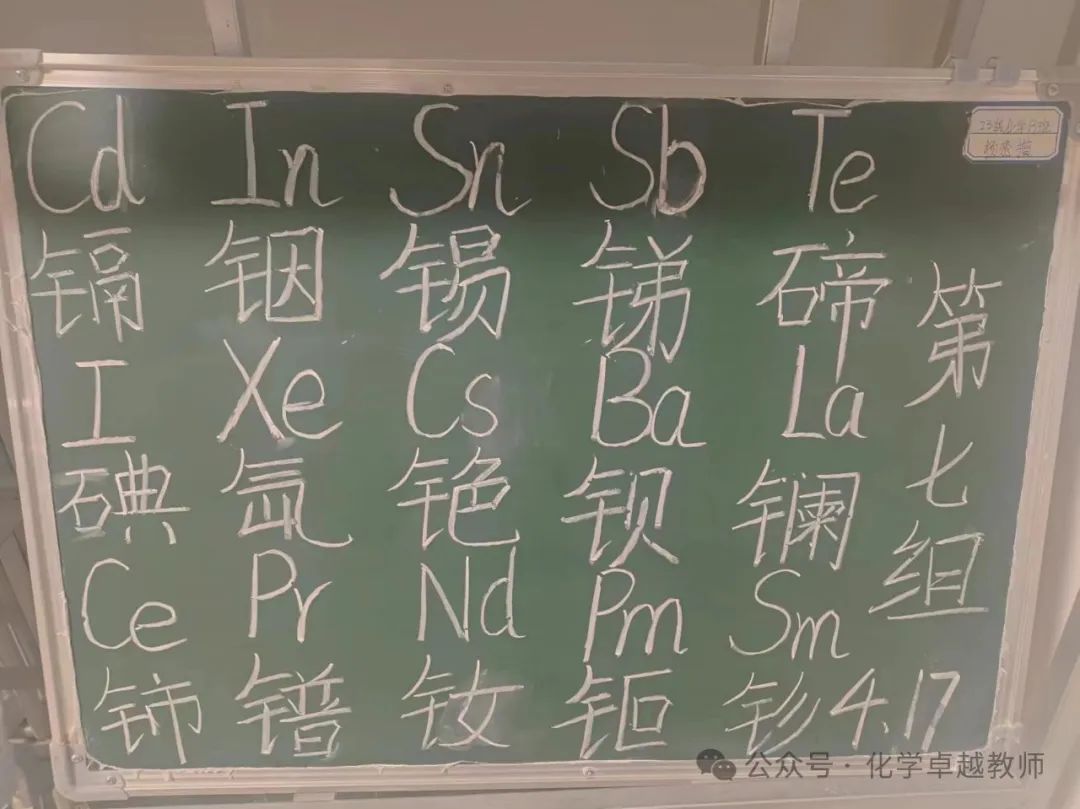 Cd In Sn Sb Te
镉 铟 锡 锑 碲
I Xe Cs Ba La
碘 氙 铯 钡 镧
Ce Pr Nd Pm Sm
铈 镨 钕 钷 钐
第七组
4.17
公众号·化学卓越教师